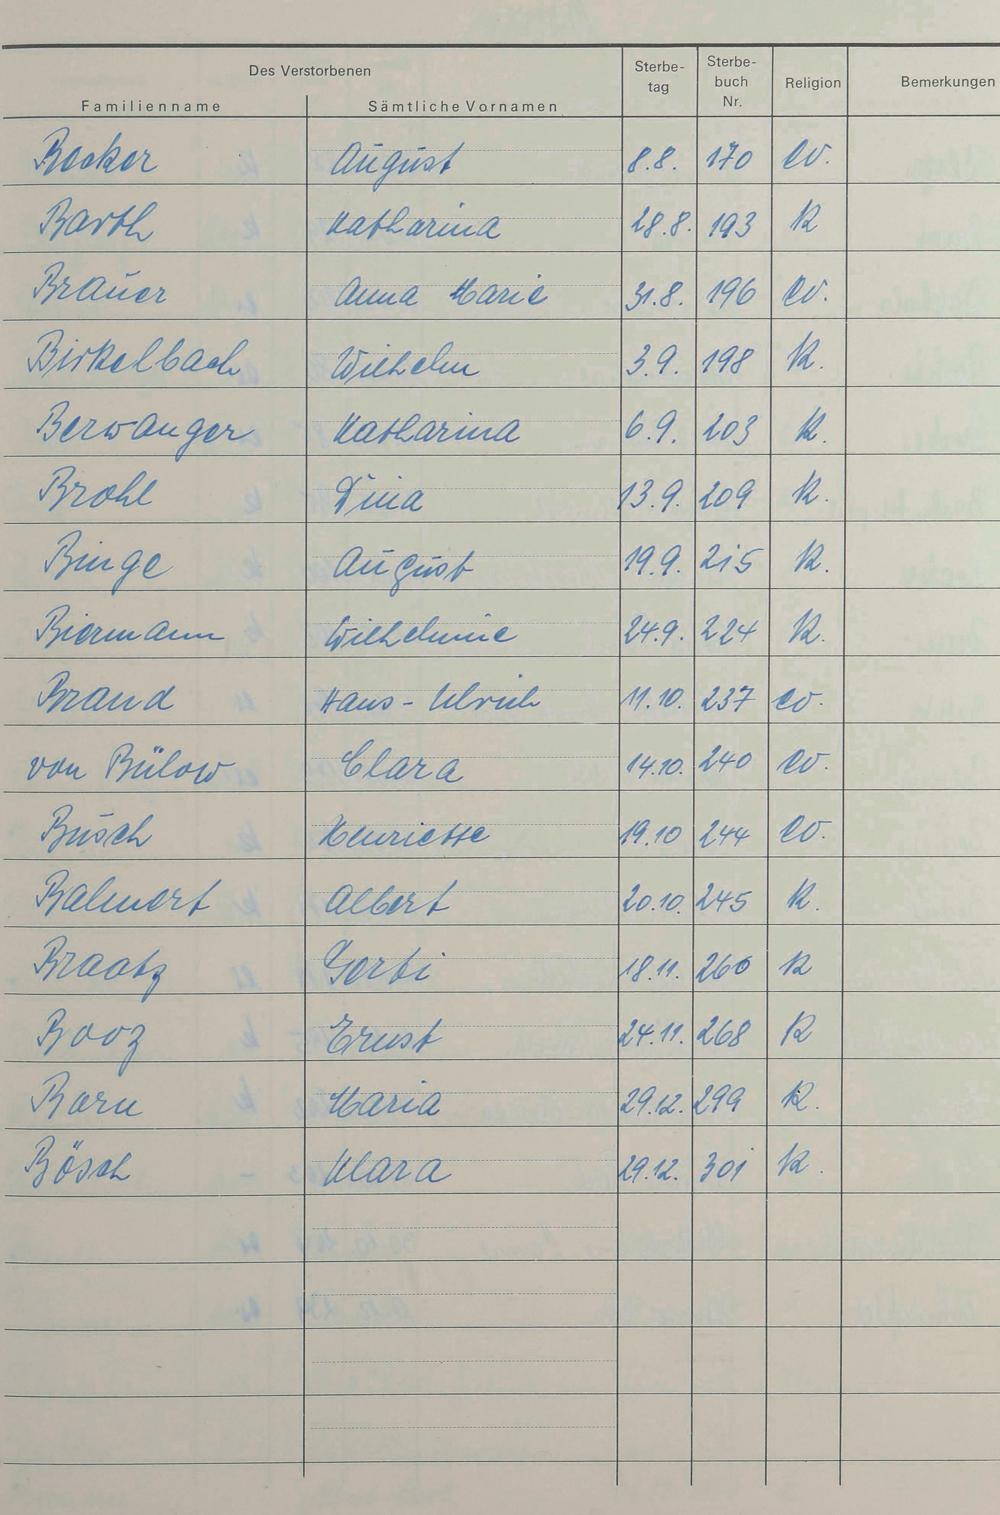 Des Verstorbenen
Familienname Sämtliche Vornamen Sterbe-tag Sterbe-buch Nr. Religion Bemerkungen
Becker August 8.8. 170 ev.
Barth Katharina 28.8. 193 k
Brauer Anna Marie 31.8. 196 ev.
Birkelbach Wilhelm 3.9. 198 k.
Berwanger Katharina 6.9. 203 k.
Brohl Dina 13.9. 209 k.
Binge August 19.9. 215 k.
Biermann Wilhelmine 24.9. 224 k.
Brand Hans-Ulrich 11.10. 237 ev.
von Bülow Clara 14.10. 240 ev.
Busch Henriette 19.10 244 ev.
Balmert Albert 20.10. 245 k.
Braatz 18.11. 260 k
Booz Ernst 24.11. 268 k
Born Maria 29.12. 299 k.
Bösch Klara 29.12. 301 k.